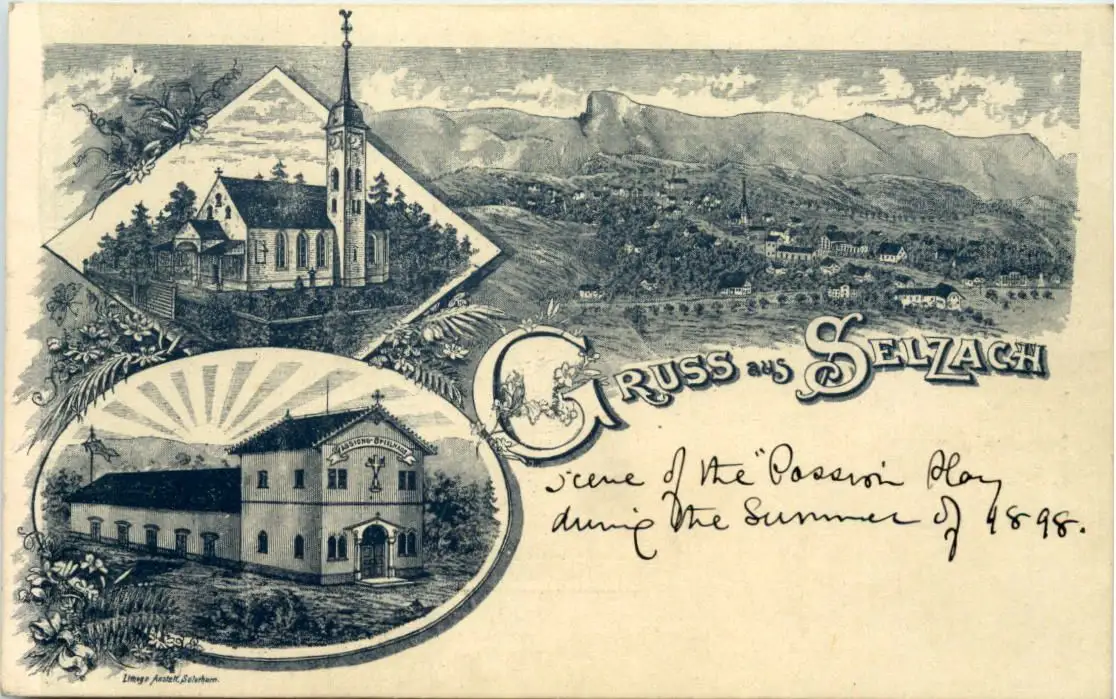 PASSIONS-SPIELHAUS
GRUSS aus SELZACH
Scene of the "Passion Play
during the Summer of 1898.
Lithogr. Anstalt, Solothurn.